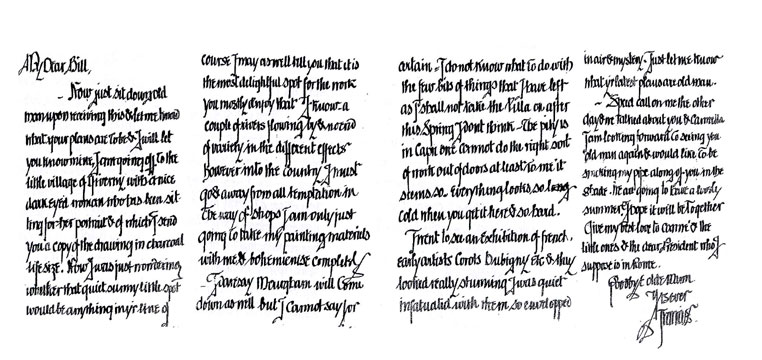 My Dear Bill,
- Now just sit down old
man upon receiving this & let me know
what your plans are to be & I will let
you know mine, I am going off to the
little village of Giverny with a nice
dark eyed woman who has been sit
ting for her portrait & of which I send
you a copy of the drawing in charcoal
life size. Now I was just wondering
whether that quiet sunny little spot
would be anything in yr line of
course I may as well tell you that it is
the most delightful spot for the work
you mostly enjoy that I know. a
couple of rivers flowing by & no end
of variety in the different effects
however into the country I must
go & away from all temptation in
the way of shops I am only just
going to take my painting materials
with me & bohemienise completely
- Tansay Maugham will come
down as well but I cannot say for
certain - I do not know what to do with
the few bits of things that I have left
as I shall not take the Villa on after
this Spring I don't think - The pity is
in Capri one cannot do the right sort
of work out of doors at least to me it
seems so. Everything looks so
cold when you get it here & so hard.
I went to see an Exhibition of french
early artists Corots Dubigny Etc & they
looked really stunning I was quiet
infatuated with them, so enveloped
in air & mystery - Just let me know
what yr latest plans are old man.
- Speed call on me the other
day & we talked about you & Carmella
I am looking forward to seeing you
old man again & would like to be
smoking my pipe along of you in the
shade. We are going to have a lovely
summer I hope it will be together
Give my best love to Connie & the
little ones & the dear President who I
suppose is in Rome.
Goodbye olde Mum
Yrs ever
Francis